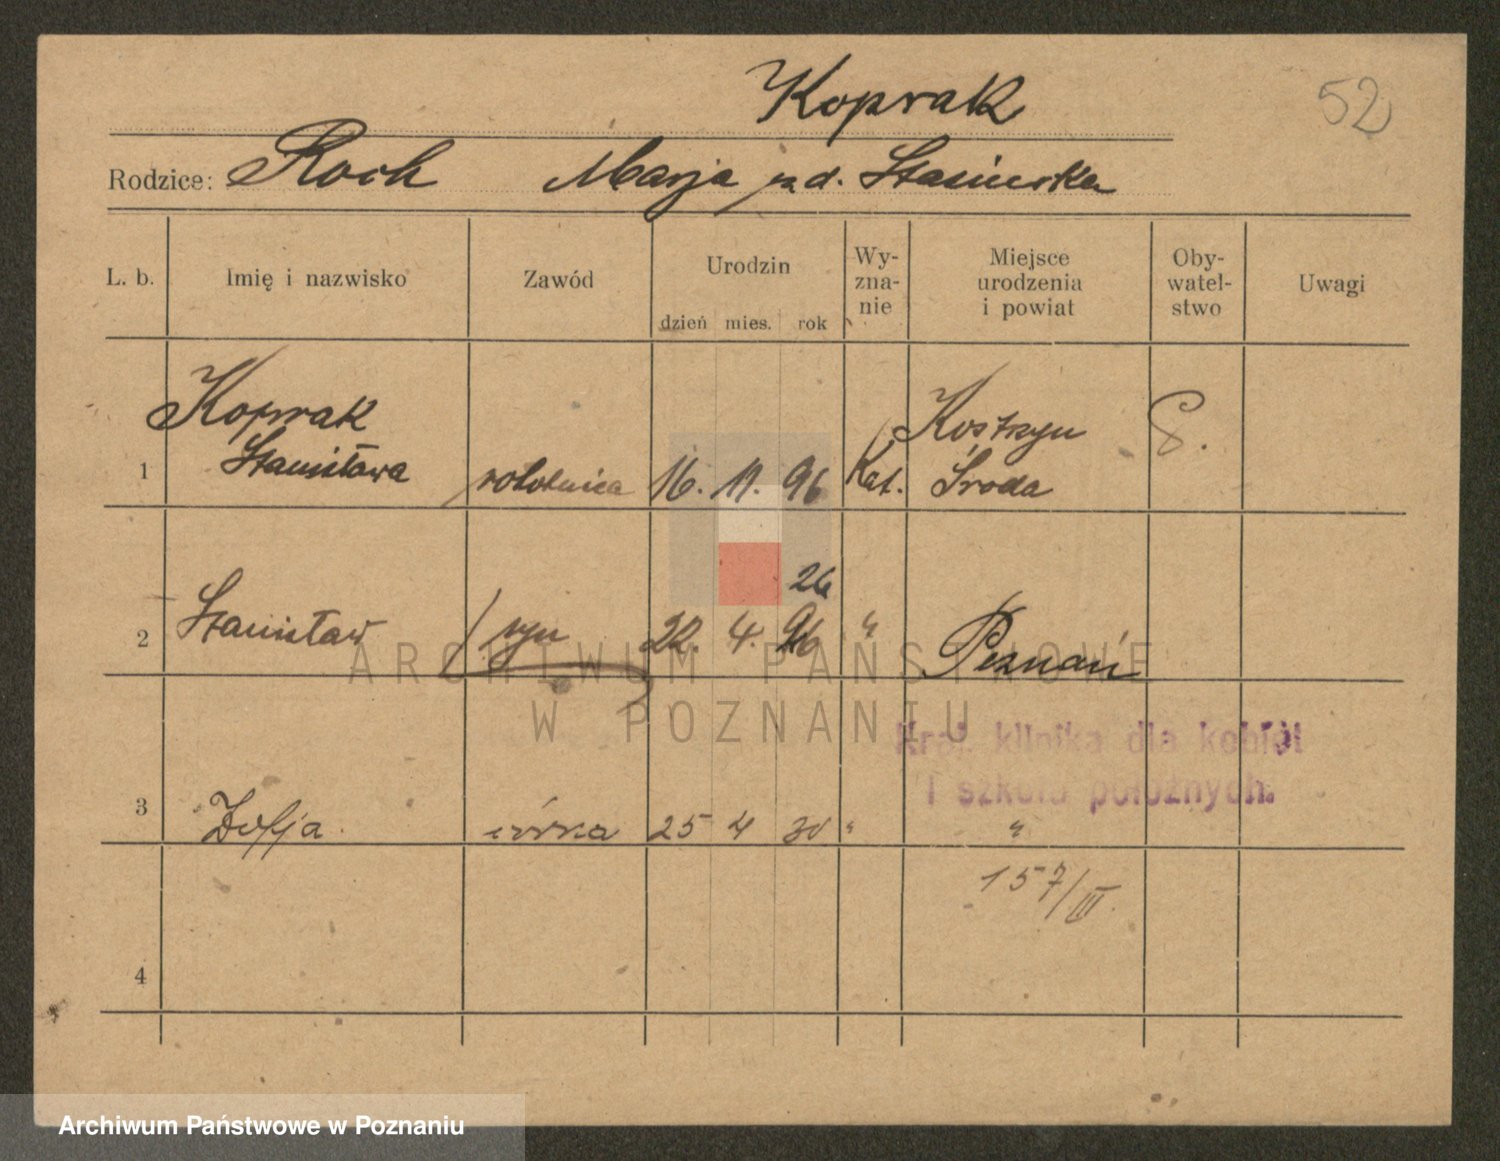 Koprak
52
Rodzice: Roch Marja zd. Stasińska
L. b. Imię i nazwisko Zawód Urodzin dzień mies. rok Wy-zna-nie Miejsce urodzenia i powiat Oby-watel-stwo Uwagi
Koprak Kostrzyn
1 Stanisława robotnica 16. 11. 96 Kat. Środa
26
2 Stanisław syn 22. 4. 96 " Poznań
ARCHIWUM PAŃSTWOWE
W POZNANIU
Kral. klinika dla kobiet
i szkoła położnych.
3 Zofja córka 25 4 30 " "
157/III.
4
Archiwum Państwowe w Poznaniu